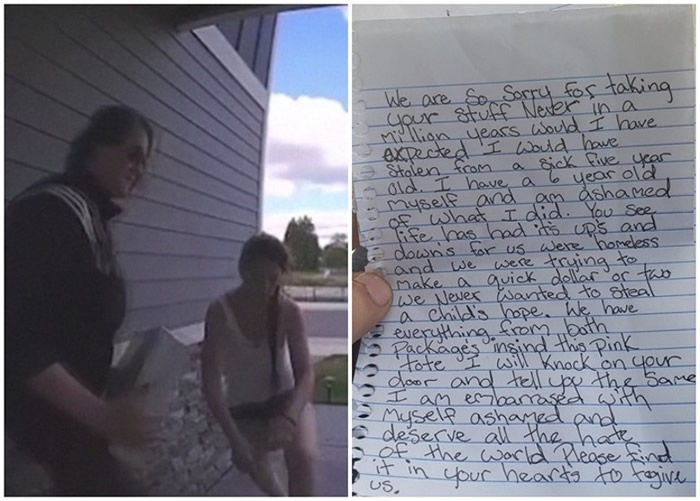 We are so sorry for taking
your stuff Never in a
million years would I have
expected I would have
stolen from a sick five year
old. I have a 6 year old
myself and am ashamed
of what I did. You see
life has had its up's and
down's for us were homeless
and we were trying to
make a quick dollar or two
we Never wanted to steal
a child's hope. We have
everything from both
Packages insind this Pink
tote I will knock on your
door and tell you the Same
I am embarrased with
Myself ashamed and
deserve all the hate
of the world Please find
it in your hearts to fogive
us.